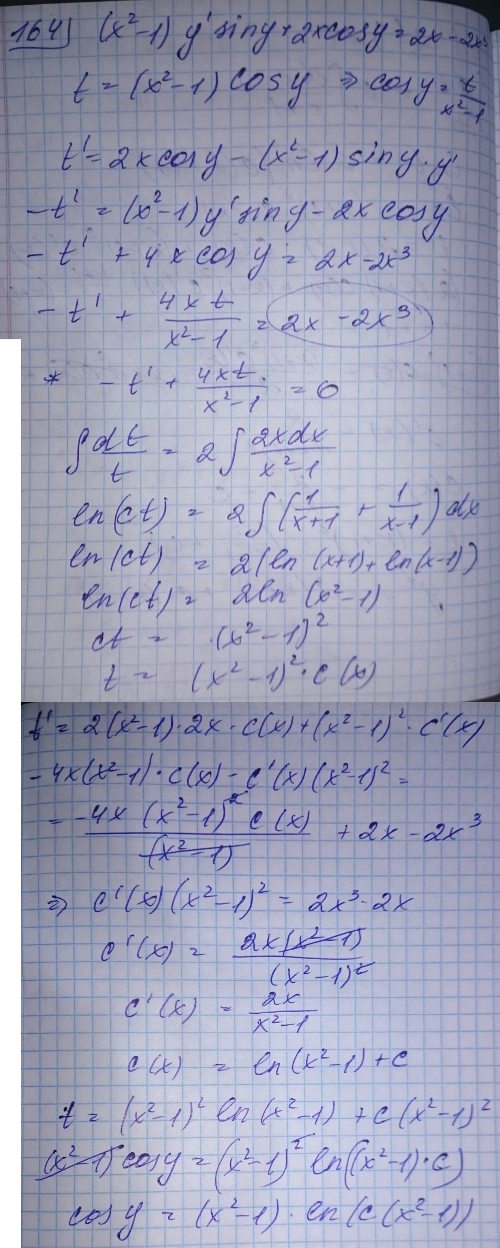 164) (x²-1) y' sin y + 2x cos y = 2x - 2x³
t = (x²-1) cos y ⇒ cos y = t/(x²-1)
t' = 2x cos y - (x²-1) sin y · y'
-t' = (x²-1) y' sin y - 2x cos y
-t' + 4x cos y = 2x - 2x³
-t' + 4xt/(x²-1) = 2x - 2x³
* -t' + 4xt/(x²-1) = 0
∫ dt/t = 2 ∫ 2xdx/(x²-1)
ln(ct) = 2 ∫ (1/(x+1) + 1/(x-1)) dx
ln(ct) = 2(ln(x+1) + ln(x-1))
ln(ct) = 2 ln (x²-1)
ct = (x²-1)²
t = (x²-1)² · c(x)
t' = 2(x²-1) · 2x · c(x) + (x²-1)² · c'(x)
-4x(x²-1) · c(x) - c'(x)(x²-1)² =
= -4x (x²-1)² c(x)/(x²-1) + 2x - 2x³
⇒ c'(x)(x²-1)² = 2x³ - 2x
c'(x) = 2x(x²-1)/(x²-1)²
c'(x) = 2x/(x²-1)
c(x) = ln(x²-1) + c
t = (x²-1)² ln(x²-1) + c(x²-1)²
(x²-1) cos y = (x²-1)² ln((x²-1)·c)
cos y = (x²-1) · ln(c(x²-1))